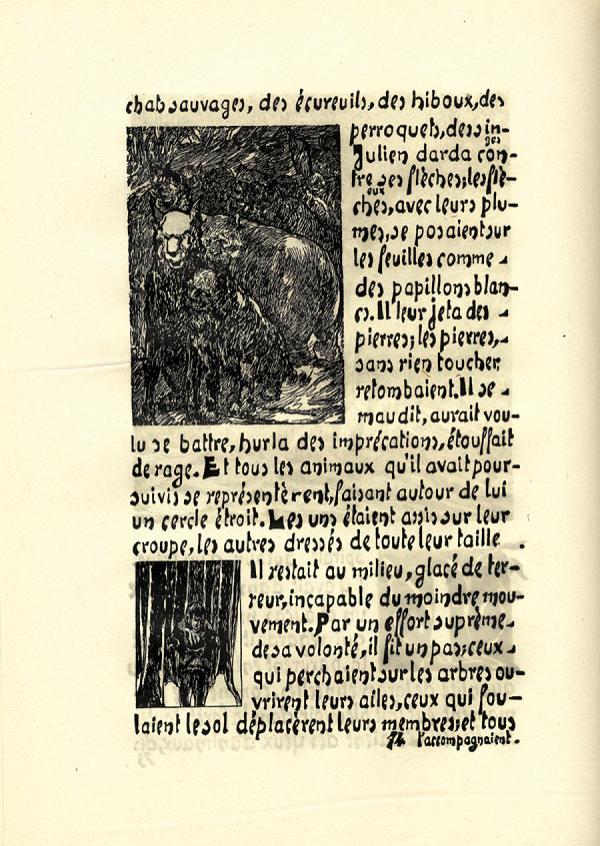 chats sauvages, des écureuils, des hiboux, des
perroquets, des sin-
ges
Julien darda con-
tre eux ses flèches; les flè-
ches, avec leurs plu-
mes, se posaient sur
les feuilles comme
des papillons blan-
cs. Il leur jeta des
pierres; les pierres,
sans rien toucher,
retombaient. Il se
maudit, aurait vou-
lu se battre, hurla des imprécations, étouffait
de rage. Et tous les animaux qu'il avait pour-
suivis se représentèrent, faisant autour de lui
un cercle étroit. Les uns étaient assis sur leur
croupe, les autres dressés de toute leur taille.
Il restait au milieu, glacé de ter-
reur, incapable du moindre mou-
vement. Par un effort suprème
de sa volonté, il fit un pas; ceux
qui perchaient sur les arbres ou-
vrirent leurs ailes, ceux qui fou-
laient le sol déplacèrent leurs membres; et tous
74 l'accompagnaient.